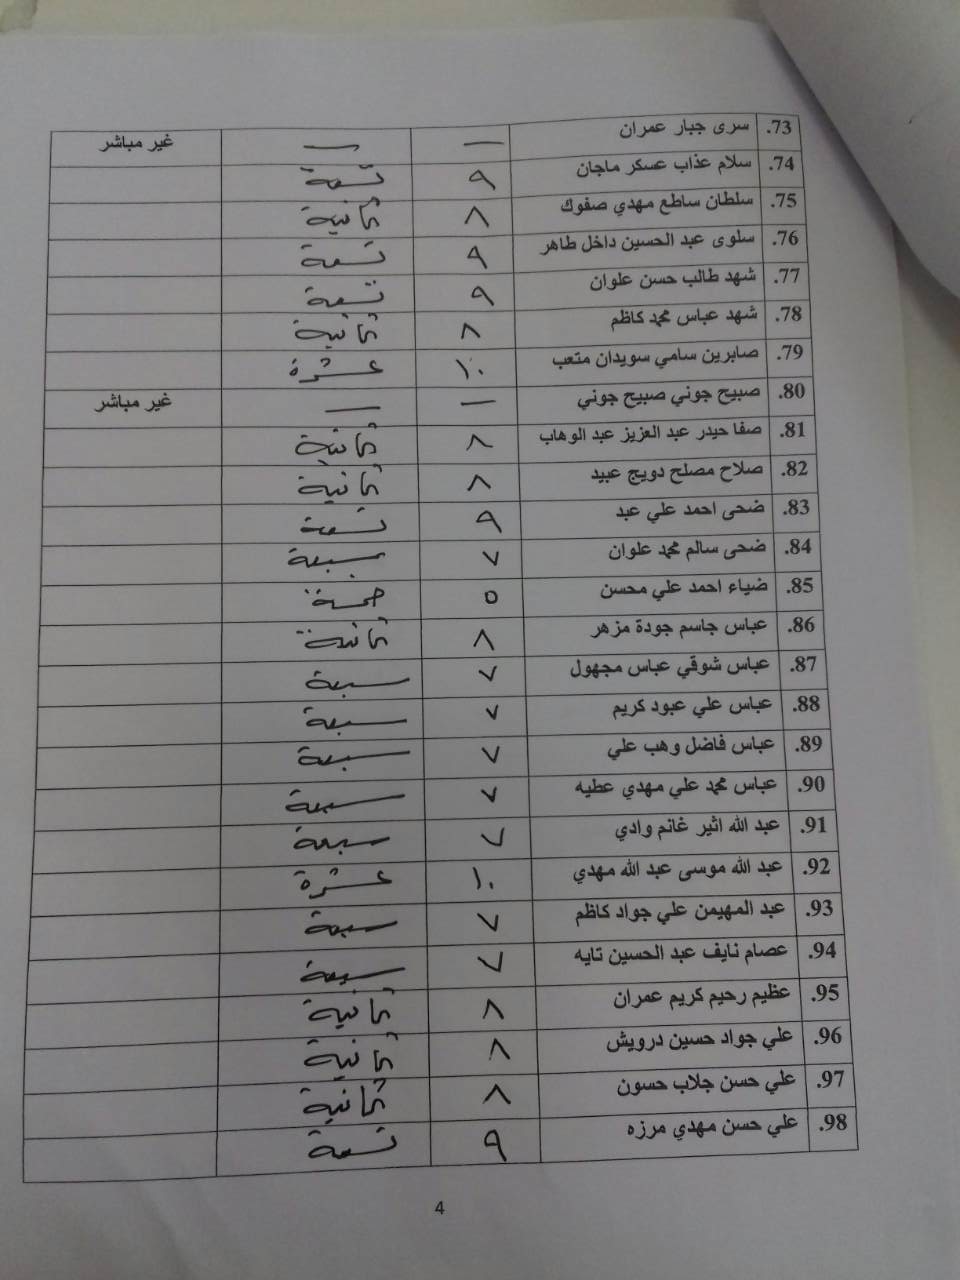 73. سرى جبار عمران — — غير مباشر
74. سلام عذاب عسكر ماجان ٩ تسعة
75. سلطان ساطع مهدي صفوك ٨ ثمانية
76. سلوى عبد الحسين داخل طاهر ٩ تسعة
77. شهد طالب حسن علوان ٩ تسعة
78. شهد عباس محمد كاظم ٨ ثمانية
79. صابرين سامي سويدان متعب ١٠ عشرة
80. صبيح جوني صبيح جوني — — غير مباشر
81. صفا حيدر عبد العزيز عبد الوهاب ٨ ثمانية
82. صلاح مصلح دويج عبيد ٨ ثمانية
83. ضحى احمد علي عبد ٩ تسعة
84. ضحى سالم محمد علوان ٧ سبعة
85. ضياء احمد علي محسن ٥ خمسة
86. عباس جاسم جودة مزهر ٨ ثمانية
87. عباس شوقي عباس مجهول ٧ سبعة
88. عباس علي عبود كريم ٧ سبعة
89. عباس فاضل وهب علي ٧ سبعة
90. عباس محمد علي مهدي عطيه ٧ سبعة
91. عبد الله اثير غانم وادي ٧ سبعة
92. عبد الله موسى عبد الله مهدي ١٠ عشرة
93. عبد المهيمن علي جواد كاظم ٧ سبعة
94. عصام نايف عبد الحسين تايه ٧ سبعة
95. عظيم رحيم كريم عمران ٨ ثمانية
96. علي جواد حسين درويش ٨ ثمانية
97. علي حسن جلاب حسون ٨ ثمانية
98. علي حسن مهدي مرزه ٩ تسعة
4